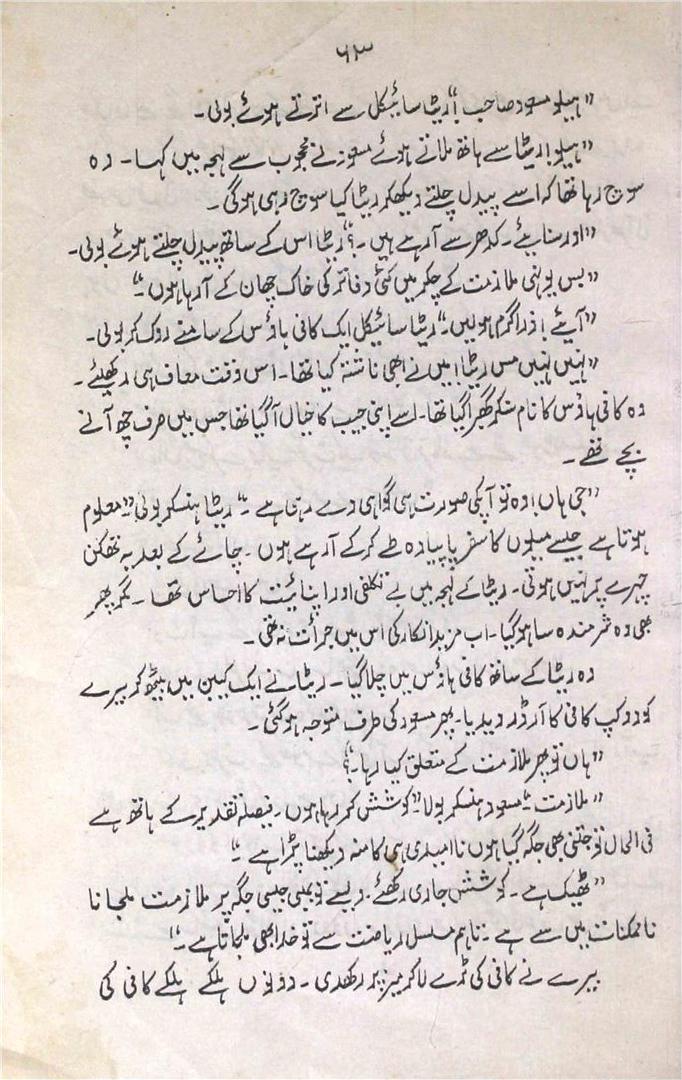 ۶۳
"ہیلو مسعود صاحب!" ریٹا سائیکل سے اترتے ہوئے بولی۔
"ہیلو! ریٹا سے ہاتھ ملاتے ہوئے مسعود نے محجوب سے لہجہ میں کہا۔ وہ
سوچ رہا تھا کہ اسے پیدل چلتے دیکھکر ریٹا کیا سوچ رہی ہو گی۔
"اور سنایئے۔ کدھر سے آ رہے ہیں۔؟" ریٹا اس کے ساتھ پیدل چلتے ہوئے بولی۔
"بس یونہی ملازمت کے چکر میں کئی دفاتر کی خاک چھان کے آ رہا ہوں۔"
"آیئے! ذرا گرم ہولیں۔" ریٹا سائیکل ایک کافی ہاؤس کے سامنے روک کر بولی۔
"نہیں نہیں مس ریٹا! میں نے ابھی ناشتہ کیا تھا۔ اس وقت معاف ہی رکھیئے۔
وہ کافی ہاؤس کا نام سنکر گھبرا گیا تھا۔ اسے اپنی جیب کا خیال آگیا تھا جس میں صرف چھ آنے
بچے تھے۔
"جی ہاں! وہ تو آپکی صورت ہی گواہی دے رہی ہے۔" ریٹا ہنسکر بولی "معلوم
ہوتا ہے جیسے میلوں کا سفر پاپیادہ طے کر کے آ رہے ہوں۔ چائے کے بعد یہ تھکن
چہرے پر نہیں ہوتی۔ ریٹا کے لہجہ میں بے تکلفی اور اپنائیت کا احساس تھا۔ مگر پھر
بھی وہ شرمندہ سا ہو گیا۔ اب مزید انکار کی اس میں جرأت نہ تھی۔
وہ ریٹا کے ساتھ کافی ہاؤس میں چلا گیا۔ ریٹا نے ایک کیبن میں بیٹھ کر بیرے
کو دو کپ کافی کا آرڈر دیدیا۔ پھر مسعود کی طرف متوجہ ہو گئی۔
"ہاں تو پھر ملازمت کے متعلق کیا رہا۔؟"
"ملازمت۔" مسعود ہنسکر بولا "کوشش کر رہا ہوں۔ فیصلہ تقدیر کے ہاتھ ہے
فی الحال تو جتنی بھی جگہ گیا ہوں ناامیدی ہی کا منہ دیکھنا پڑا ہے۔"
"ٹھیک ہے۔ کوشش جاری رکھئے۔ ویسے تو بمبئی جیسی جگہ پر ملازمت ملجانا
ناممکنات میں سے ہے۔ تاہم مسلسل ریاضت سے تو خدا بھی ملجاتا ہے۔"
بیرے نے کافی کی ٹرے لاکر میز پر رکھدی۔ دونوں ہلکے ہلکے کافی کی